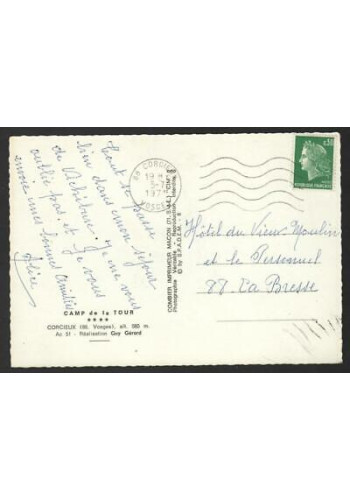 Tout se passe
bien dans mon séjour
du Je ne vous
oublie pas et je vous
envoie mes bonnes amitiés
88 CORCIEUX
VOSGES
0,30
REPUBLIQUE FRANÇAISE
COMBIER IMPRIMEUR MACON (S.-&-L.) "CIM"
Photographie Véritable - Reproduction Interdite
© by S.P.A.D.E.M.
Hôtel du Vieux Moulin
et le Personnel
88 La Bresse
CAMP de la TOUR
★★★★
CORCIEUX (88. Vosges), alt.
Ac. 51 - Réalisation Guy Gérard